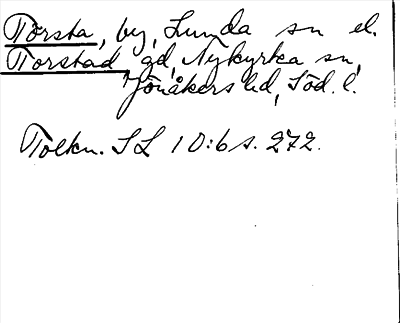 Törsta, by, Lunda sn el.
Torstad gd, Nykyrka sn,
Jönåkers hd, Söd. l.
Tolkn. SL 10:6 s. 272.